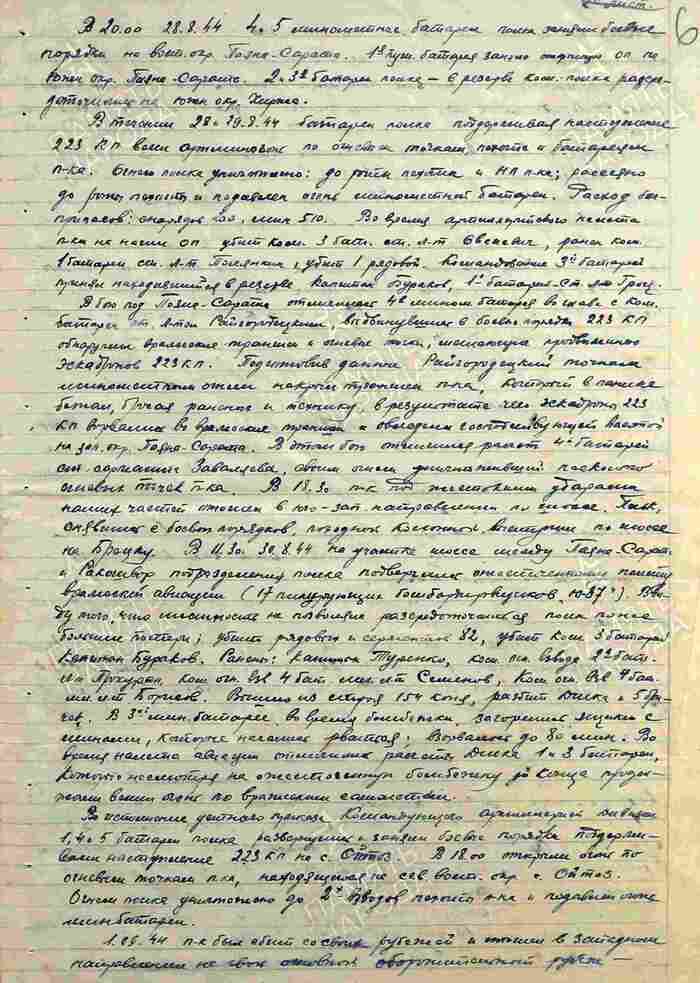 6
В 20.00 28.8.44 4 и 5 минометные батареи полка заняли боевые
порядки на вост. окр. Пояна-Сарата. 1я батарея заняла ОП на
южн окр. Пояна-Сарата. 2 и 3я батареи полка – в резерве ком. полка рассре-
доточились на южн. окр.
В течении 28 и 29.8.44 батареи полка поддерживая наступление
223 КП вели артминогонь по огневым точкам, пехоте и батареям
п-ка. Огнем полка уничтожено: до роты пехоты и НП п-ка; рассеяно
до роты пехоты и подавлен огонь минометной батареи. Расход бое-
припасов: снарядов 200, мин 510. Во время артминометного налета
п-ка на наши ОП убит ком. 3 бат. ст. л-т Евсевич, ранен ком.
1 батареи ст. л-т, убит 1 рядовой. Командование 3й батареей
принял находившийся в резерве капитан Бураков, 1й батареей – ст. л-т
В бою под Пояна-Сарата отличилась 4я миномет. батарея во главе с ком.
батареи ст. л-том Райгородецким, выдвинувшись в боевые порядки 223 КП
обнаружил вражеские траншеи и огневые точки, мешающие продвижению
эскадронов 223 КП. Подготовив данные, Райгородецкий точным
минометным огнем накрыл траншеи п-ка, который в панике
бежал, бросая раненых и технику, в результате чего эскадроны 223
КП ворвались во вражеские траншеи и овладели высотой
на зап. окр. Пояна-Сарата. В этом бою отличился расчет 4й батареи
ст. сержанта Заваляева, своим огнем уничтоживший несколько
огневых точек п-ка. В 18.30 п-к под жестокими ударами
наших частей отошел в юго-зап направлении по шоссе. Полк,
снявшись с боевых порядков, походной колонной выступил по шоссе
на Брецку. В 11.30. 30.8.44 на участке шоссе между Пояна-Сарата
и подразделения полка подверглись ожесточенному налету
вражеской авиации (17 пикирующих бомбардировщиков "Ю-87"). Вви-
ду того, что местность не позволяла рассредоточиться полк понес
большие потери: убито рядового и сержантов 82, убит ком. 3 батареи
капитан Бураков. Ранены: капитан Туренко, ком. взвода 2й бат.
л-т, ком. огн. взв 4 бат мл. л-т Семенов, ком. огн. взв 4 бат.
мл. л-т Борисов. Вышло из строя 154 коня, разбит и 5
В 5й мин. батарее, во время бомбежки, загорелись ящики с
минами, которые начали рваться; взорвалось до 80 мин. Во
время налета авиации отличились расчеты 1 и 3 батареи,
которые несмотря на ожесточенную бомбежку до конца продол-
жали вести огонь по вражеским самолетам.
Во исполнение устного приказа командующего артиллерией дивизии
1, 4 и 5 батареи полка развернулись и заняли боевые порядки поддержи-
вали наступление 223 КП на с. Ойтоз. В 18.00 открыли огонь по
огневым точкам п-ка, находящимся на сев. вост. окр. с. Ойтоз.
Огнем полка уничтожено до 2х взводов пехоты п-ка и подавлен огонь
минбатареи.
1.09.44 п-к был сбит со своих рубежей и отошел в западном
направлении на свой основной оборонительный рубеж –